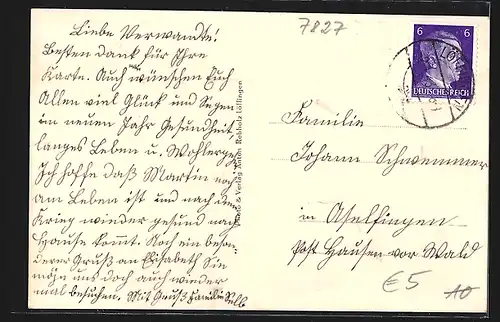 7827
Liebe Verwandte!
Besten dank für Ihre
Karte. Auch wünschen Euch
Allen viel Glück und Segen
in neuen Jahr Gesundheit
langes Leben u. Wohlergeh.
Ich hoffe daß Martin noch
am Leben ist und nach dem
Krieg wieder gesund nach
Hause kommt. Noch ein beson-
derer Gruß an Elisabeth Sie
möge uns doch auch wieder
mal besuchen. Mit Gruß Familie Selb
Verlag Anton Rebholz Löffingen
6 6
DEUTSCHES REICH
LÖ
Familie
Johann Schwemmer
in Aselfingen
Post Hausen vor Wald
€5
10